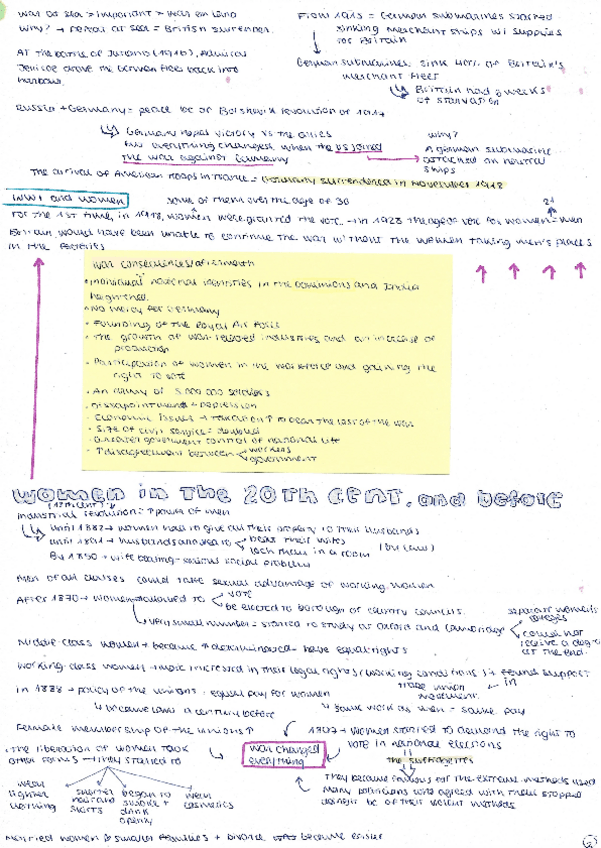 War at sea > important > war on land
Why? → defeat at sea = British surrender.
At the battle of Jutland (1916), Admiral
Jellicoe drove the German fleet back into
harbour.
From 1915 = German submarines started
sinking merchant ships w/ supplies
for Britain
German submarines sink 40% of Britain's
merchant fleet
Britain had 6 weeks
of starvation
Russia + Germany = peace bc of Bolshevik revolution of 1917
Germany hoped victory vs the allies
but everything changed when the US joined
the war against Germany
why?
German submarine
attacked on neutral
ships
The arrival of American troops in France = Germany surrendered in November 1918
WW1 and women
some of them over the age of 30
21
For the 1st time, in 1918, women were granted the vote → in 1928 the age of vote for women = men
Britain would have been unable to continue the war without the women taking men's places
in the factories
War consequences/aftermath
• Individual national identities in the dominions and India
heightened.
• No mercy for Germany
• Founding of the Royal Air Force
• The growth of war-related industries and an increase of
production
• Participation of women in the workforce and gaining the
right to vote
• An army of 5.000.000 soldiers
• Disappointment + depression
• Economic issues → taxation ↑ to bear the cost of the war
• Size of civil service = doubled
• Greater government control of national life
• ↑ disagreement between workers
government
Women in the 20th cent. and before
Industrial revolution: ↑ power of men
Until 1882 → women had to give all their property to their husbands
until 1891 → husbands allowed to beat their wifes
lock them in a room (by law)
By 1850 → wife beating = serious social problem
Men of all classes could take sexual advantage of working women
After 1870 → women = allowed to vote
be elected to borough or country councils.
Very small number = started to study at Oxford and Cambridge
separate women's
colleges
could not
receive a degree
at the end.
Middle-class women → became ↑ determined = have equal rights
Working-class women → more interested in their legal rights (working conditions) → found support
in
trade union
movement.
in 1888 → policy of the unions: equal pay for women
same work as men = same pay
Female membership of the unions ↑
1897 → women started to demand the right to
vote in national elections
the suffragettes
War changed
everything
The liberation of women took
other forms → they started to
wear
lighter
clothing
shorter
hair and
skirts
began to
smoke +
drink
openly
wear
cosmetics
They became famous for the extreme methods used
Many politicians who agreed with them stopped
doing it bc of their violent methods
Married women = smaller families + divorce became easier